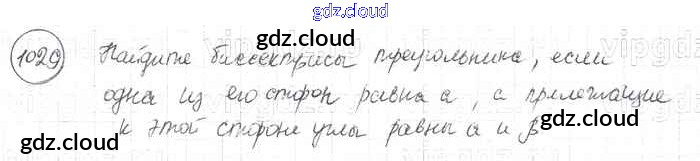 gdz.cloud
gdz.cloud
1029 Найдите биссектрисы треугольника, если
одна из его сторон равна a, а прилежащие
gdz.cloud
к этой стороне углы равны α и β
gdz.cloud gdz.cloud